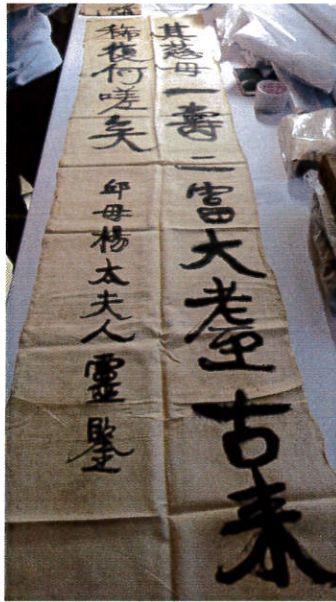 其慈母一壽二富大耋古来
稀復何嗟矣
邱母楊太夫人靈鑒